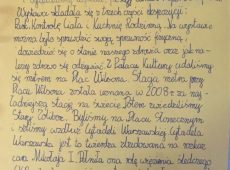 Wykład składał się z trzech części dotyczącej:
Rad Kontroli Ciała i Kuchnię Rodzinną. Na wystawie
można było sprawdzić swoją sprawność fizyczną,
dowiedzieć się o stanie naszego zdrowia oraz jak na-
leży zdrowo się odżywiać. Z Pałacu Kultury udaliśmy
się metrem na Plac Wilsona. Stacja metra przy
Placu Wilsona została uznana w 2008 r za naj-
ładniejszą stację na świecie. Potem zwiedziliśmy
Stary Żoliborz. Byliśmy na Placu Słonecznym
i szliśmy wzdłuż Cytadeli Warszawskiej. Cytadela
Warszawska jest to twierdza zbudowana na rozkaz
cara Mikołaja I. Pełniła ona rolę więzienia śledczego